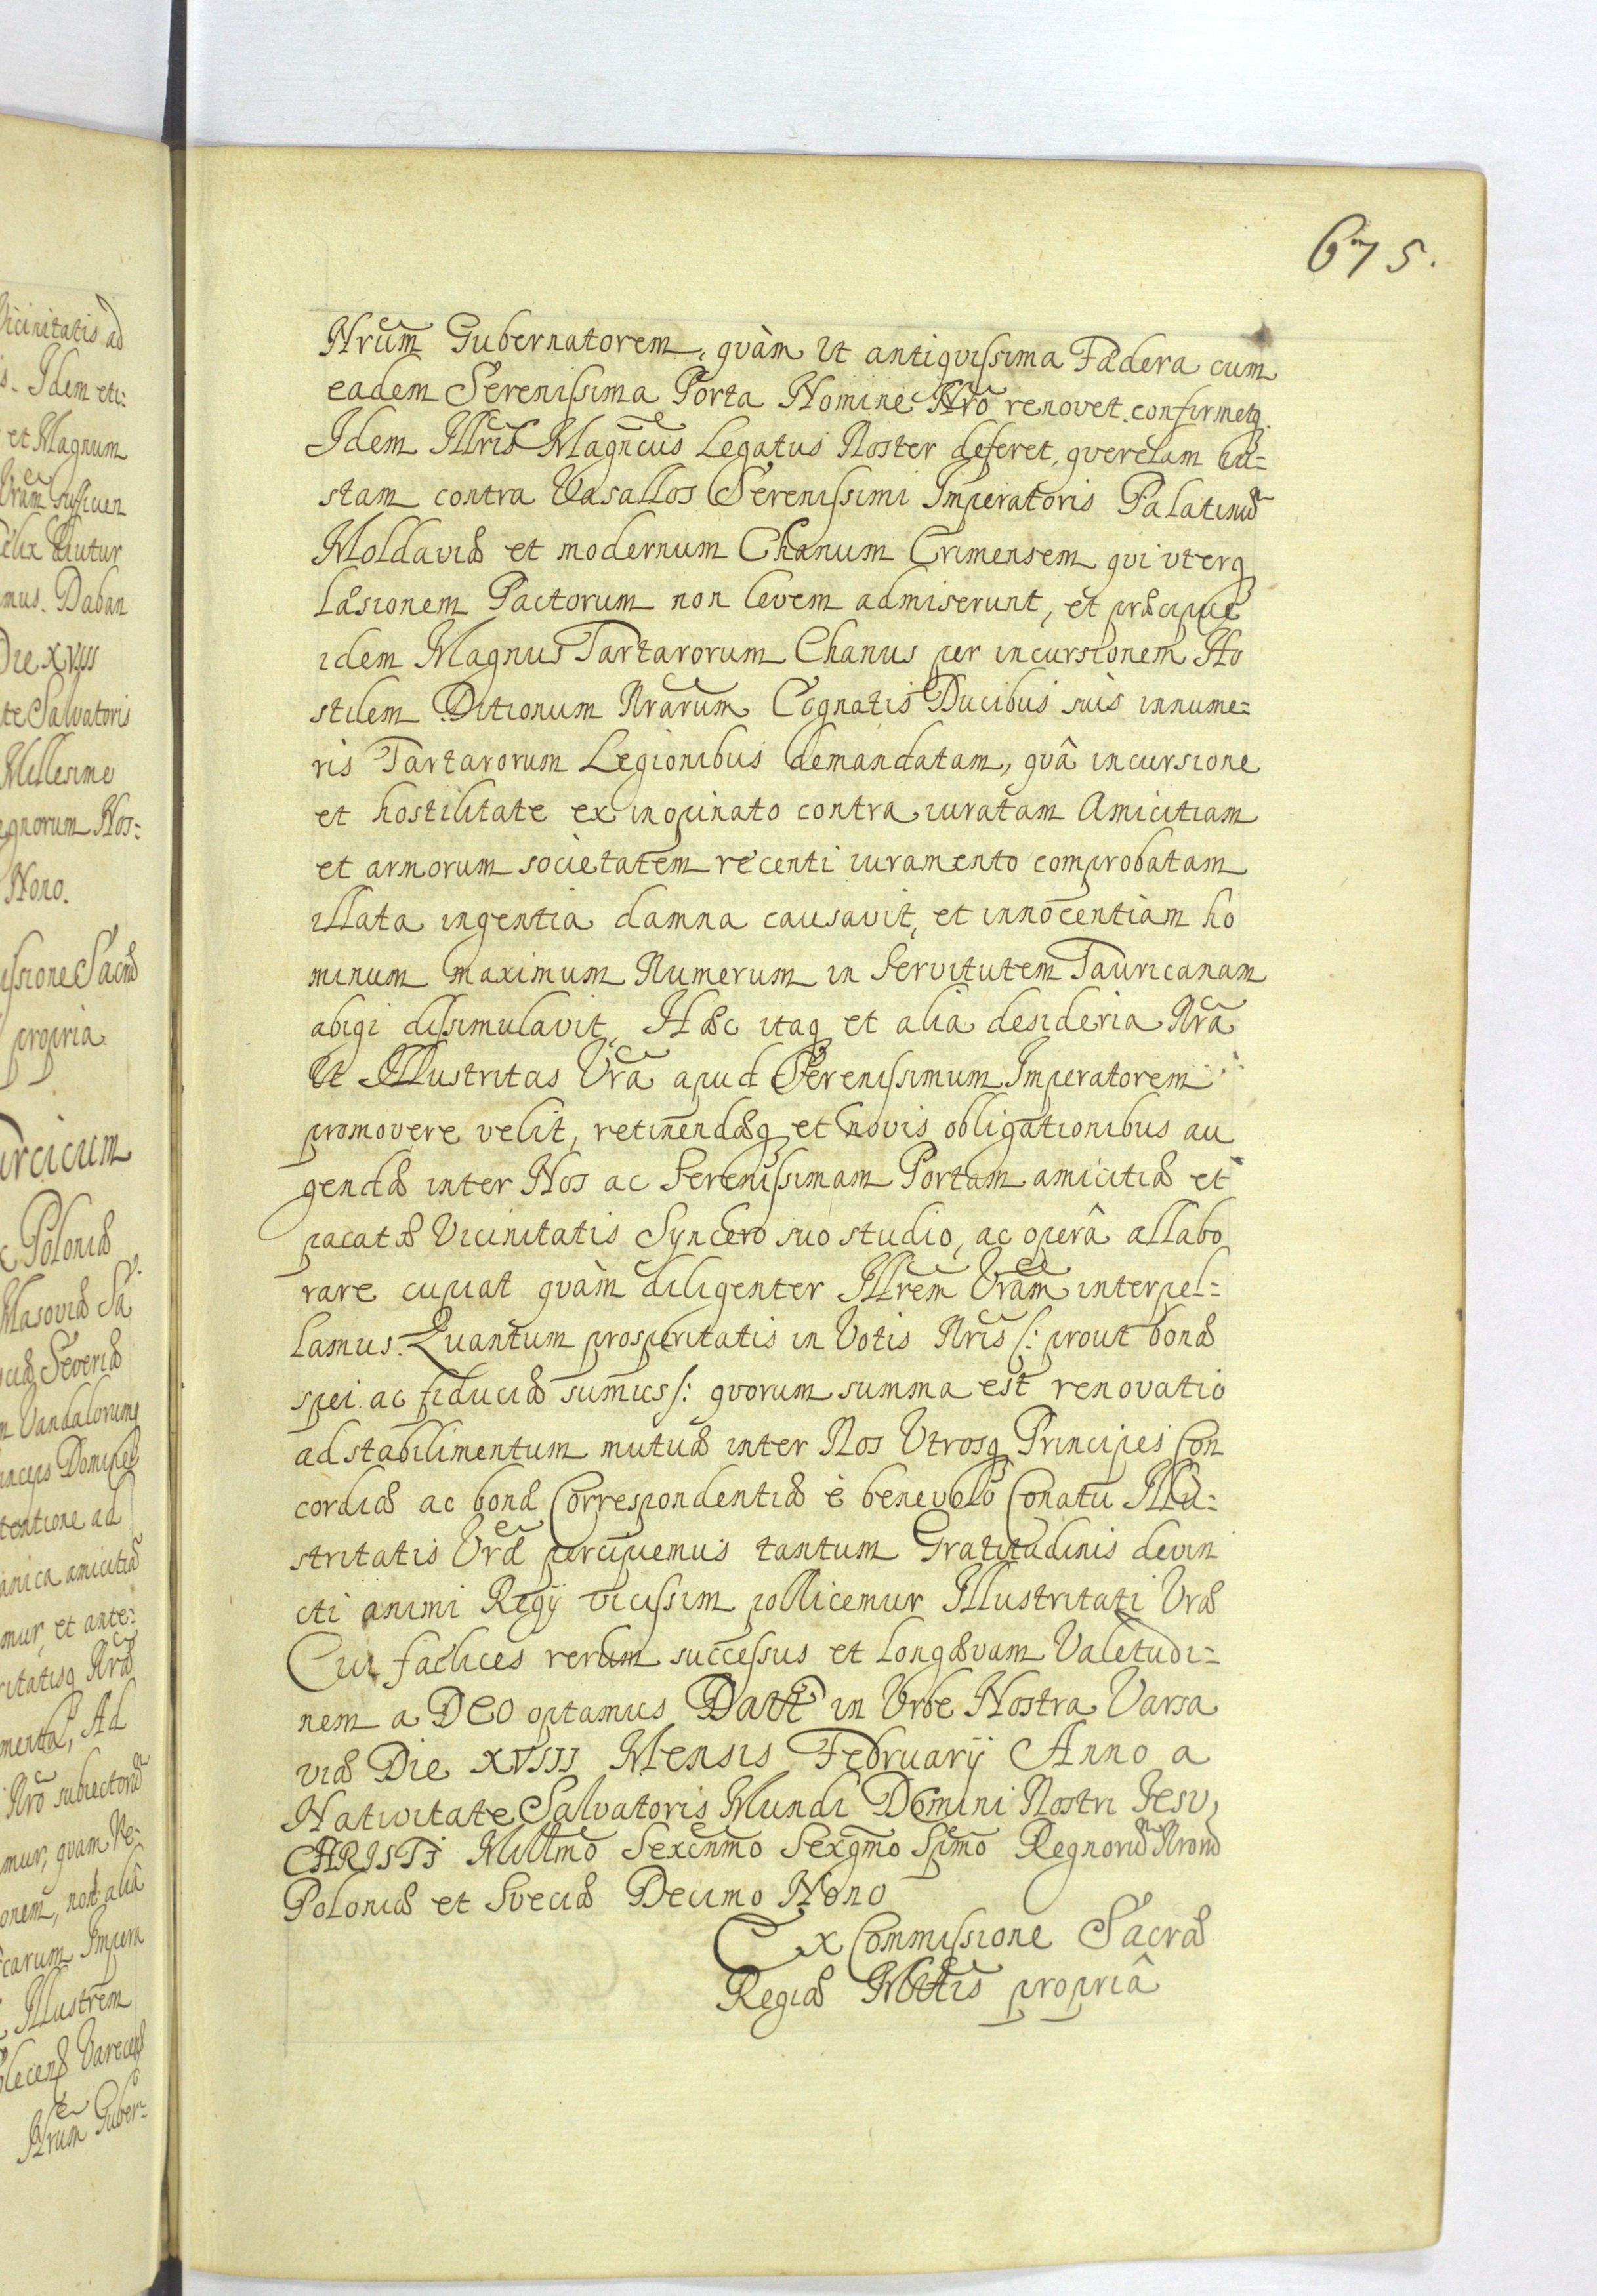 675.
Nrum Gubernatorem, quàm Ut antiquissima Fædera cum
eadem Serenissima Porta Nomine Nro renovet confirmetq.
Idem Illris Magncus Legatus Noster deferet, querelam iu=
stam contra Vasallos Serenissimi Imperatoris Palatinū
Moldaviæ et modernum Chanum Crimensem qui uterq
læsionem Pactorum non levem admiserunt, et præcipuè
idem Magnus Tartarorum Chanus per incursionem Ho
stilem Ditionum Nrarum Cognatis Ducibus suis innume=
ris Tartarorum Legionibus demandatam, quâ incursione
et hostilitate ex inopinato contra iuratam Amicitiam
et armorum societatem recenti iuramento comprobatam
illata ingentia damna causavit, et innocentiam ho
minum maximum Numerum in Servitutem Tauricanam
abigi dissimulavit, Hæc itaq et alia desideria Nra
Ut Illustritas Vra apud Serenissimum Imperatorem
promovere velit, retinendæq et novis obligationibus au
gendæ inter Nos ac Serenissimam Portam amicitiæ et
pacatæ Vicinitatis Syncero suo studio, ac operâ allabo
rare cupiat quàm diligenter Illrem Vram interpel=
lamus. Quantum prosperitatis in Votis Nris /: prout bonæ
spei ac fiduciæ sumus /: quorum summa est renovatio
ad stabilimentum mutuæ inter Nos Utrosq Principes Con
cordiæ ac bonæ Correspondentiæ è benevolo Conatu Illu=
stritatis Vræ percipiemus tantum Gratitudinis devin
cti animi Regij vicissim pollicemur Illustritati Vræ
Cui fælices rerum successus et longævam Valetudi=
nem a DEO optamus Datt in Urbe Nostra Varsa
viæ Die XVIII Mensis Februarij Anno a
Nativitate Salvatoris Mundi Domini Nostri Iesu,
CHRISTI Millmo Sexcnmo Sexgmo Spmo Regnorū Nrorū
Poloniæ et Sveciæ Decimo Nono
Ex Commissione Sacræ
Regiæ Mttis propriâ